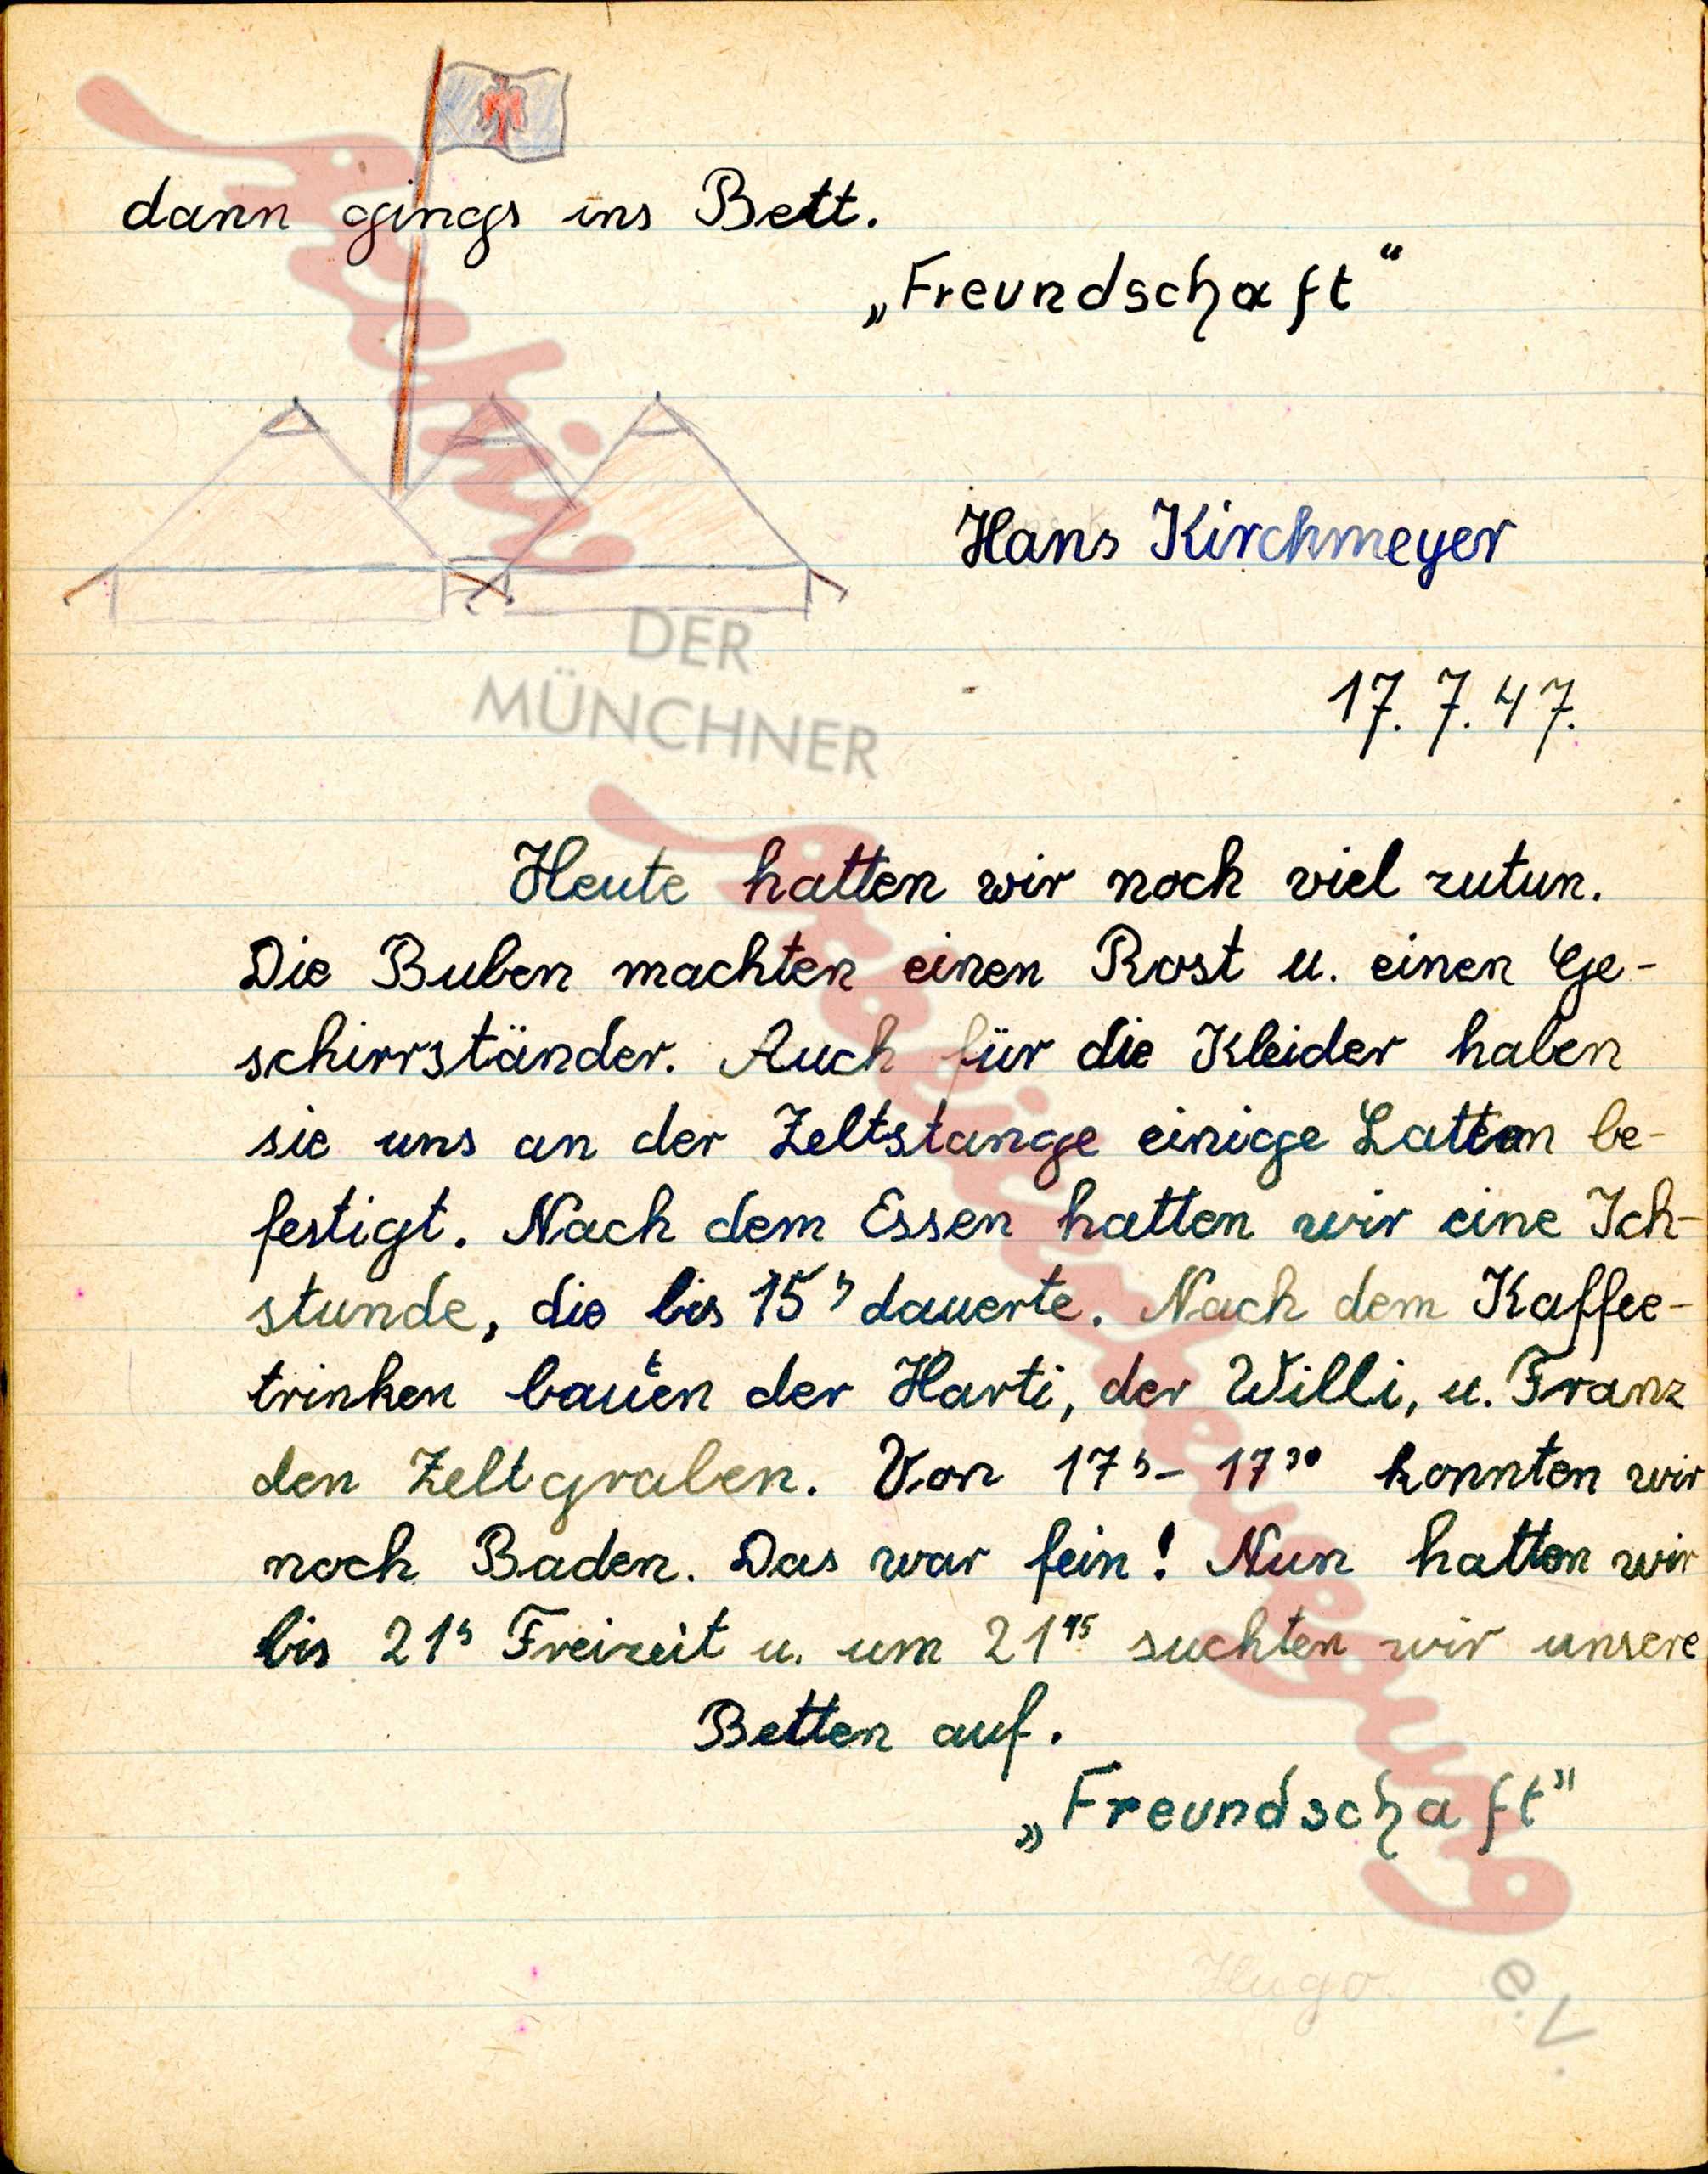 dann gings ins Bett.
„Freundschaft“
Hans Kirchmeyer
DER
MÜNCHNER
17. 7. 47.
Heute hatten wir noch viel zutun.
Die Buben machten einen Rost u. einen Ge-
schirrständer. Auch für die Kleider haben
sie uns an der Zeltstange einige Latten be-
festigt. Nach dem Essen hatten wir eine Ich-
stunde, die bis 15ʰ dauerte. Nach dem Kaffee-
trinken bauten der Harti, der Willi, u. Franz
den Zeltgraben. Von 17ʰ - 17³⁰ konnten wir
noch Baden. Das war fein! Nun hatten wir
bis 21ʰ Freizeit u. um 21¹⁵ suchten wir unsere
Betten auf.
„Freundschaft“
Hugo.
e.V.